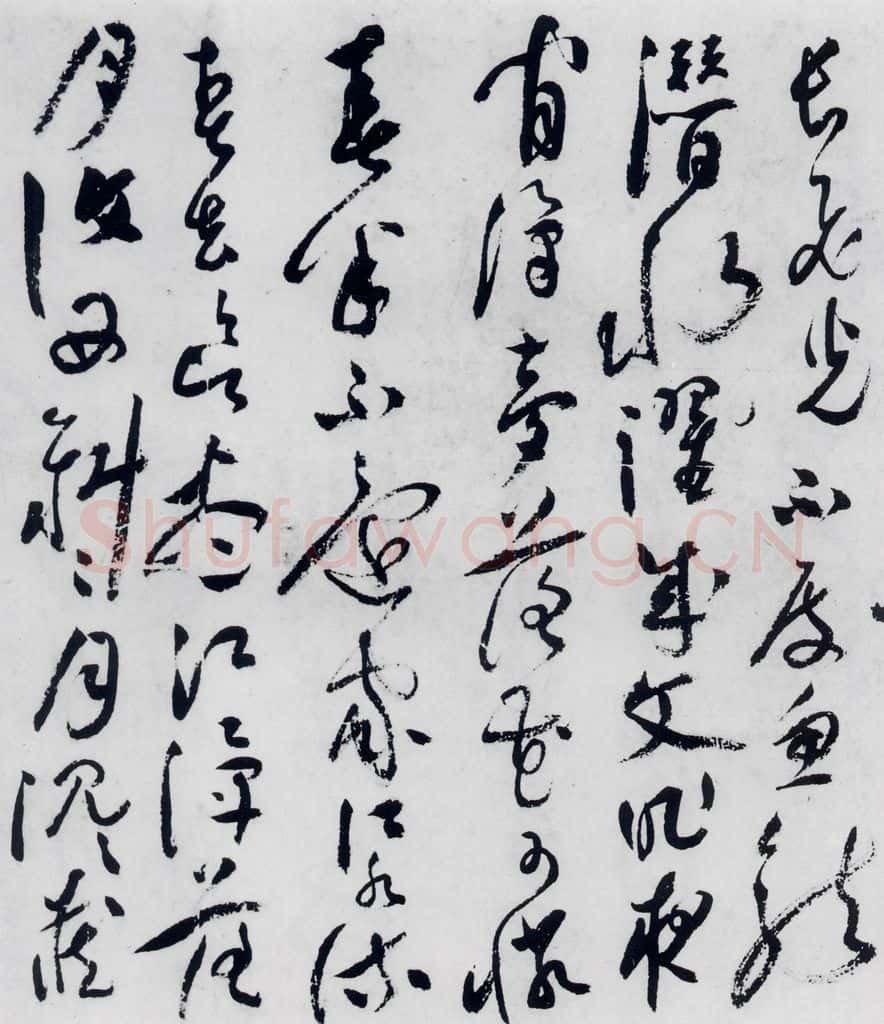 長飛光不度魚龍
潛水躍成文昨夜
閒潭夢落花可憐
春半不還家江水流
春去欲盡江潭落
月復西斜斜月沉沉藏
Shufawang.CN